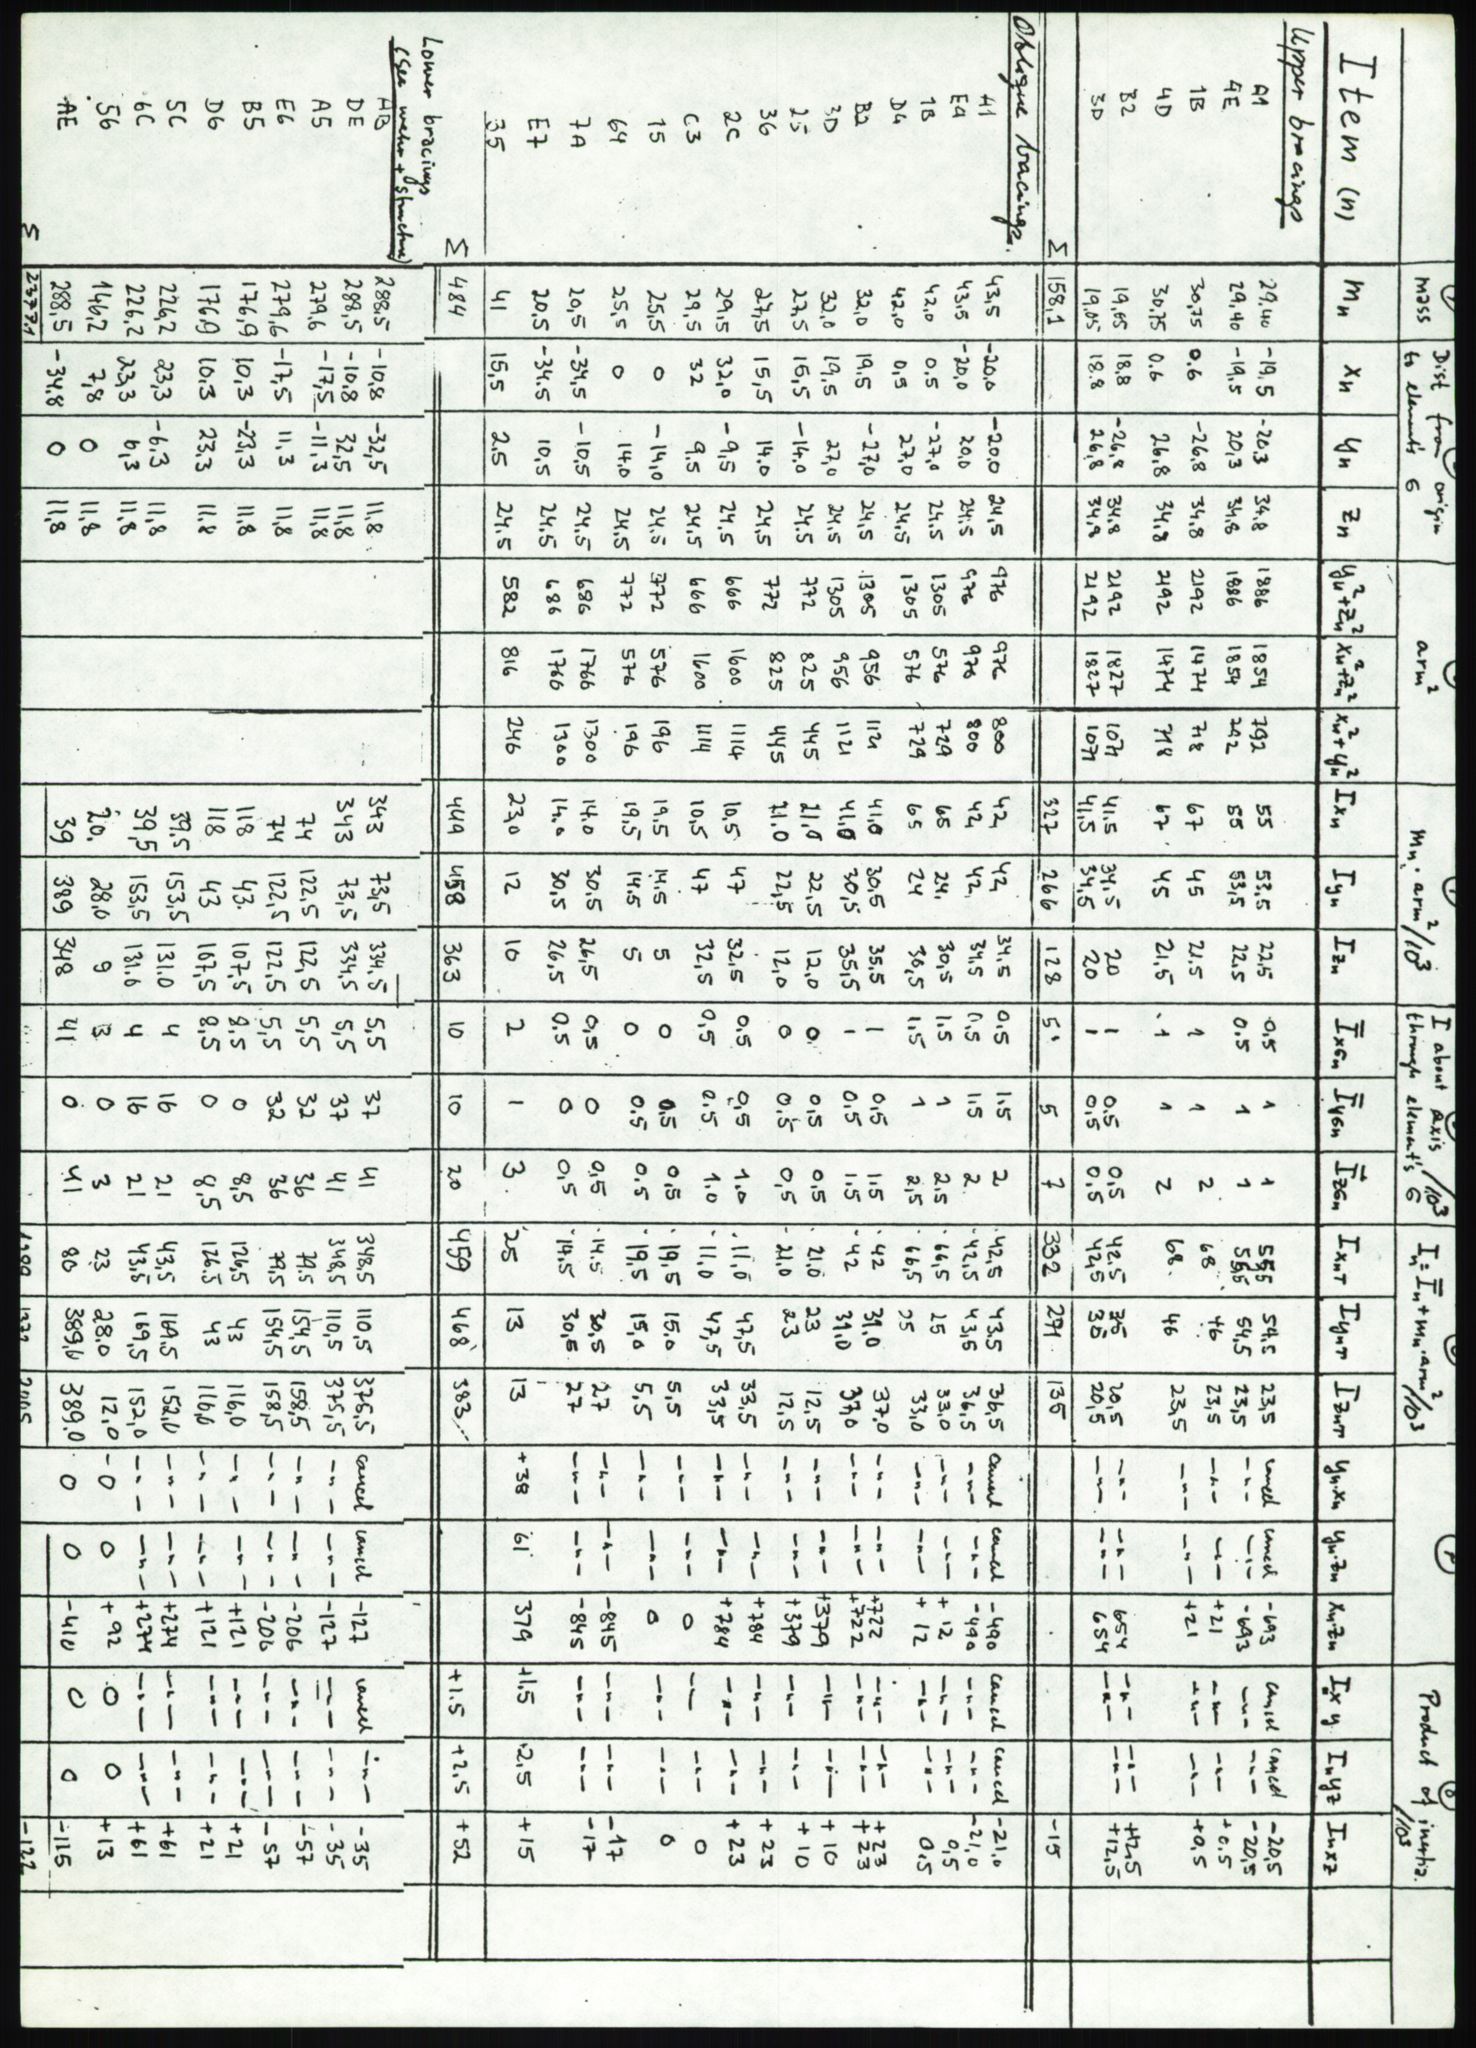 Item (n) | ① mass mₙ | ② Dist from origin to element's G xₙ | yₙ | zₙ | arm² yₙ²+zₙ² | xₙ²+zₙ² | xₙ²+yₙ² | mₙ·arm²/10³ Ixₙ | Iyₙ | Izₙ | I about axis through element's G /10³ ĪxGₙ | ĪyGₙ | ĪzGₙ | Iₙ=Īₙ+mₙ·arm²/10³ IxₙT | IyₙT | IzₙT | yₙ·xₙ | yₙ·zₙ | xₙ·zₙ | Product of inertia /10³ Iₙxy | Iₙyz | Iₙxz
Upper bracings
A1 29.40 -19,5 -20.3 34.8 1886 1854 792 55 53.5 22,5 0,5 1 1 55,5 54,5 23,5 cancel cancel -693 cancel cancel -20,5
4E 29,40 -19,5 20,3 34,8 1886 1854 792 55 53,5 22.5 0.5 1 1 55,5 54,5 23,5 -"- -"- -693 -"- -"- -20,5
1B 30,75 0.6 -26.8 34,8 2192 1474 718 67 45 21.5 1 1 2 68 46 23,5 -"- -"- +21 -"- -"- +0.5
4D 30.75 0.6 26.8 34.8 2192 1474 718 67 45 21.5 1 1 2 68 46 23,5 -"- -"- +21 -"- -"- +0,5
B2 19,05 18.8 -26,8 34.8 2192 1827 1071 41.5 34.5 20 1 0.5 0,5 42.5 35 20,5 -"- -"- 654 -"- -"- +12,5
3D 19,05 18.8 26,8 34,8 2192 1827 1071 41,5 34,5 20 1 0,5 0,5 42,5 35 20,5 -"- -"- 654 -"- -"- +12,5
Σ 158,1 327 266 128 5 5 7 332 271 135 -15
Oblique bracings.
A1 43,5 -20.0 -20.0 24,5 976 976 800 42, 42, 34.5 0.5 1.5 2 42,5 43.5 36,5 cancel cancel -490 cancel cancel -21,0
E4 43,5 -20,0 20,0 24,5 976 976 800 42, 42, 34.5 0.5 1.5 2 42.5 43,5 36,5 -"- -"- -490 -"- -"- -21,0
1B 42,0 0.5 -27,0 24.5 1305 576 729 65 24. 30,5 1.5 1 2.5 66,5 25 33,0 -"- -"- +12 -"- -"- 0,5
D4 42.0 0,5 27,0 24.5 1305 576 729 65 24 30,5 1.5 1 2,5 66,5 25 33,0 -"- -"- +12 -"- -"- 0.5
B2 32,0 19,5 -27,0 24,5 1305 956 1121 41,0 30.5 35.5 1 0,5 1.5 42 31,0 37,0 -"- -"- +722 -"- -"- +23
3D 32.0 19,5 27,0 24.5 1305 956 1121 41,0 30,5 35,5 1 0,5 1.5 42 31,0 37,0 -"- -"- +722 -"- -"- +23
25 27,5 15,5 -14.0 24.5 772 825 445 21,0 22.5 12.0 0. 0,5 0,5 21,0 23 12,5 -"- -"- +379 -"- -"- +10
36 27,5 15,5 14.0 24,5 772 825 445 21.0 22,5 12,0 0 0,5 0,5 21,0 23 12,5 -"- -"- +379 -"- -"- +10
2C 29,5 32,0 -9,5 24.5 666 1600 1114 10,5 47 32,5 0.5 0,5 1.0 11,0 47,5 33,5 -"- -"- +784 -"- -"- +23
C3 29,5 32 9,5 24.5 666 1600 1114 10,5 47 32,5 0,5 0.5 1.0 11,0 47,5 33,5 -"- -"- +784 -"- -"- +23
15 25,5 0 -14,0 24.5 772 576 196 19.5 14.5 5 0 0.5 0,5 19,5 15.0 5,5 -"- -"- 0 -"- -"- 0
64 25,5 0 14.0 24,5 772 576 196 19,5 14.5 5 0 0.5 0.5 19,5 15,0 5,5 -"- -"- 0 -"- -"- 0
7A 20,5 -34,5 -10,5 24.5 686 1766 1300 14.0 30.5 26,5 0,5 0 0,5 14.5 30,5 27 -"- -"- -845 -"- -"- -17
E7 20.5 -34.5 10,5 24.5 686 1766 1300 14.0 30,5 26,5 0.5 0 0,5 14,5 30,5 27 -"- -"- -845 -"- -"- -17
35 41 15,5 2.5 24.5 582 816 246 23,0 12 10 2 1 3 25 13 13 +38 61 379 +1,5 +2,5 +15
Σ 484 449 458 363 10 10 20 459 468 383 +1.5 +2,5 +52
Lower bracings
(See mehn + structure)
AB 288.5 -10,8 -32,5 11.8 343 73,5 334.5 5,5 37 41 348,5 110,5 375,5 cancel cancel -127 cancel -"- -35
DE 288.5 -10,8 32,5 11,8 343 73,5 334,5 5,5 37 41 348,5 110,5 375,5 -"- -"- -127 -"- -"- -35
A5 279,6 -17,5 -11,3 11,8 74 122.5 122,5 5,5 32 36 79,5 154,5 158,5 -"- -"- -206 -"- -"- -57
E6 279,6 -17,5 11,3 11,8 74 122,5 122,5 5,5 32 36 79,5 154,5 158,5 -"- -"- -206 -"- -"- -57
B5 176,9 10,3 -23,3 11.8 118 43. 107,5 8,5 0 8,5 126,5 43 116,0 -"- -"- +121 -"- -"- +21
D6 176,9 10.3 23.3 11.8 118 43 107,5 8,5 0 8,5 126.5 43 116,0 -"- -"- +121 -"- -"- +21
5C 226,2 23,3 -6.3 11,8 39.5 153,5 131.0 4 16 21 43,5 169,5 152,0 -"- -"- +274 -"- -"- +61
6C 226.2 23,3 6,3 11,8 39,5 153,5 131.0 4 16 21 43,5 169,5 152,0 -"- -"- +274 -"- -"- +61
56 146,2 7,8 0 11,8 20. 28,0 9 3 0 3 23 28.0 12,0 -0 0 +92 0 0 +13
AE 288,5 -34,8 0 11,8 39 389 348 41 0 41 80 389,0 389,0 0 0 -410 0 0 -115
Σ 2377,1 -122